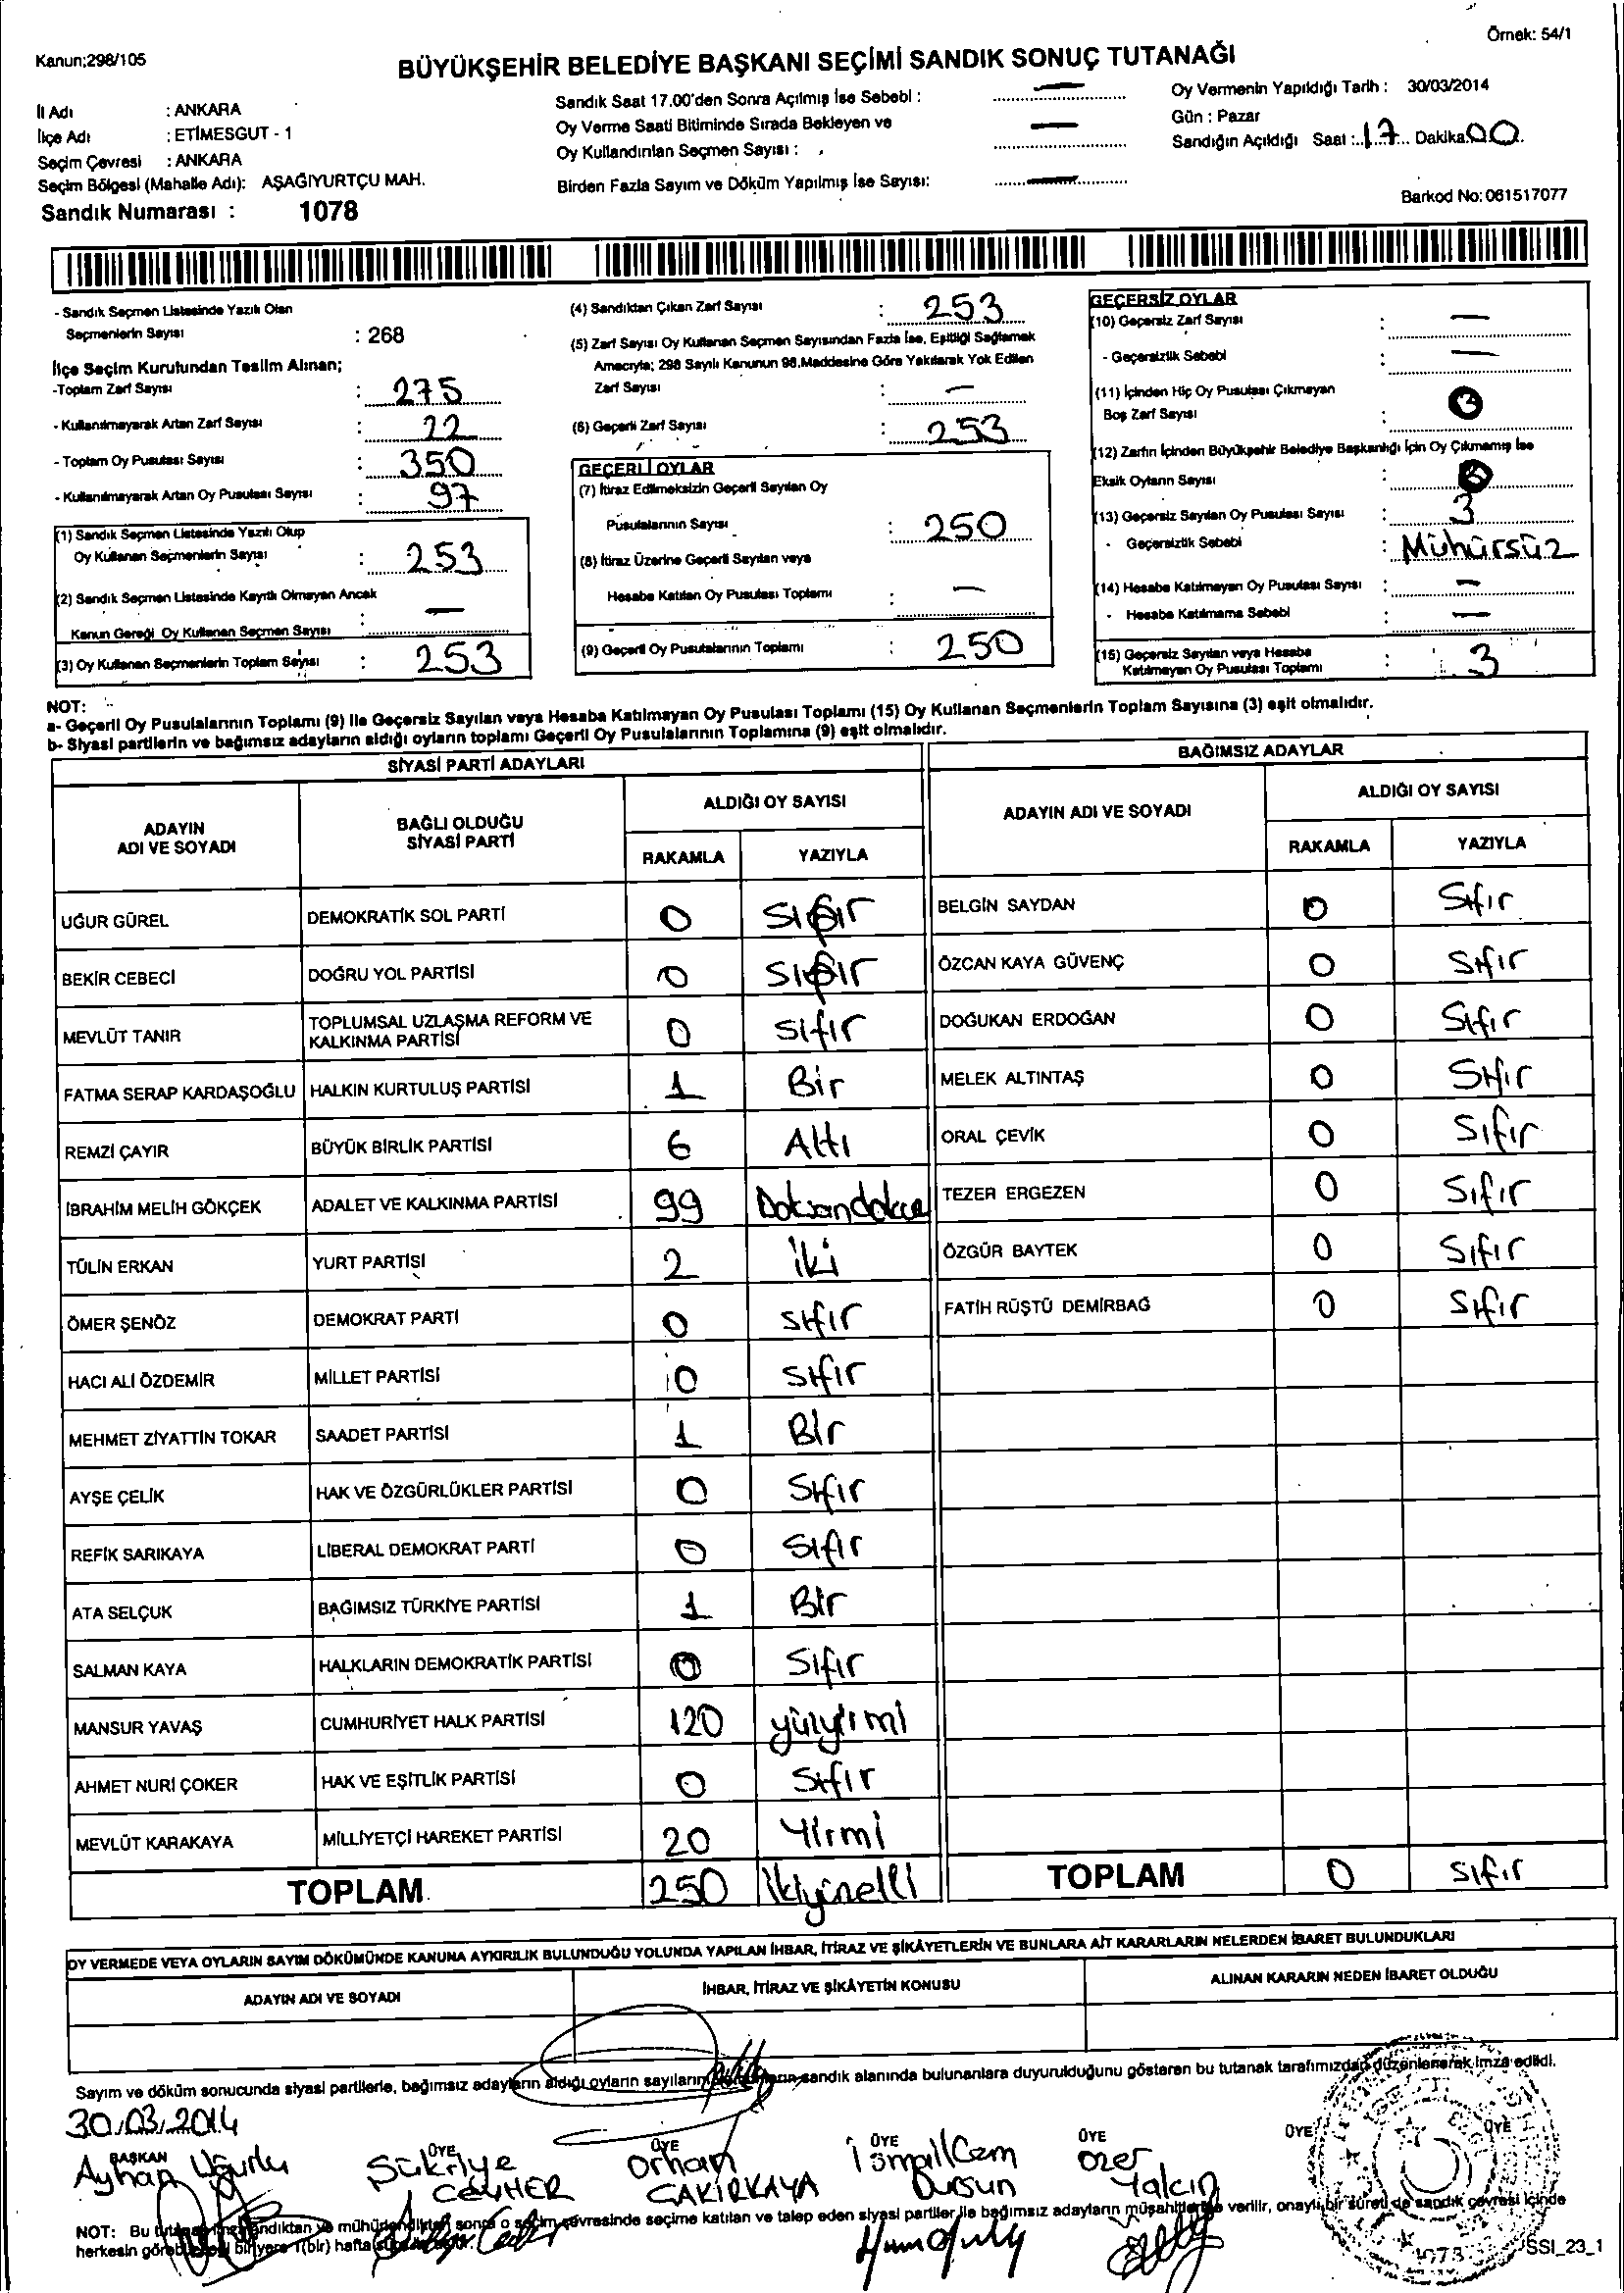 Örnek: 54/1
Kanun;298/105
BÜYÜKŞEHİR BELEDİYE BAŞKANI SEÇİMİ SANDIK SONUÇ TUTANAĞI
İl Adı : ANKARA
İlçe Adı : ETİMESGUT - 1
Seçim Çevresi : ANKARA
Seçim Bölgesi (Mahalle Adı): AŞAĞIYURTÇU MAH.
Sandık Numarası : 1078
Sandık Saat 17.00'den Sonra Açılmış İse Sebebi : —
Oy Verme Saati Bitiminde Sırada Bekleyen ve
Oy Kullandırılan Seçmen Sayısı : —
Birden Fazla Sayım ve Döküm Yapılmış İse Sayısı: —
Oy Vermenin Yapıldığı Tarih : 30/03/2014
Gün : Pazar
Sandığın Açıldığı Saat : 17 Dakika 00
Barkod No: 061517077
- Sandık Seçmen Listesinde Yazılı Olan
Seçmenlerin Sayısı : 268
İlçe Seçim Kurulundan Teslim Alınan;
-Toplam Zarf Sayısı : 275
- Kullanılmayarak Artan Zarf Sayısı : 22
- Toplam Oy Pusulası Sayısı : 350
- Kullanılmayarak Artan Oy Pusulası Sayısı : 97
(1) Sandık Seçmen Listesinde Yazılı Olup
Oy Kullanan Seçmenlerin Sayısı : 253
(2) Sandık Seçmen Listesinde Kayıtlı Olmayan Ancak
Kanun Gereği Oy Kullanan Seçmen Sayısı : —
(3) Oy Kullanan Seçmenlerin Toplam Sayısı : 253
(4) Sandıktan Çıkan Zarf Sayısı : 253
(5) Zarf Sayısı Oy Kullanan Seçmen Sayısından Fazla İse, Eşitliği Sağlamak
Amacıyla; 298 Sayılı Kanunun 98.Maddesine Göre Yakılarak Yok Edilen
Zarf Sayısı : —
(6) Geçerli Zarf Sayısı : 253
GEÇERLİ OYLAR
(7) İtiraz Edilmeksizin Geçerli Sayılan Oy
Pusulalarının Sayısı : 250
(8) İtiraz Üzerine Geçerli Sayılan veya
Hesaba Katılan Oy Pusulası Toplamı : —
(9) Geçerli Oy Pusulalarının Toplamı : 250
GEÇERSİZ OYLAR
(10) Geçersiz Zarf Sayısı : —
- Geçersizlik Sebebi : —
(11) İçinden Hiç Oy Pusulası Çıkmayan
Boş Zarf Sayısı :
(12) Zarfın İçinden Büyükşehir Belediye Başkanlığı İçin Oy Çıkmamış İse
Eksik Oyların Sayısı :
(13) Geçersiz Sayılan Oy Pusulası Sayısı : 3
- Geçersizlik Sebebi : Mühürsüz
(14) Hesaba Katılmayan Oy Pusulası Sayısı : —
- Hesaba Katılmama Sebebi : —
(15) Geçersiz Sayılan veya Hesaba
Katılmayan Oy Pusulası Toplamı : 3
NOT:
a- Geçerli Oy Pusulalarının Toplamı (9) ile Geçersiz Sayılan veya Hesaba Katılmayan Oy Pusulası Toplamı (15) Oy Kullanan Seçmenlerin Toplam Sayısına (3) eşit olmalıdır.
b- Siyasi partilerin ve bağımsız adayların aldığı oyların toplamı Geçerli Oy Pusulalarının Toplamına (9) eşit olmalıdır.
SİYASİ PARTİ ADAYLARI
ADAYIN ADI VE SOYADI BAĞLI OLDUĞU SİYASİ PARTİ ALDIĞI OY SAYISI
RAKAMLA YAZIYLA
UĞUR GÜREL DEMOKRATİK SOL PARTİ 0 Sıfır
BEKİR CEBECİ DOĞRU YOL PARTİSİ 0 Sıfır
MEVLÜT TANIR TOPLUMSAL UZLAŞMA REFORM VE KALKINMA PARTİSİ 0 sıfır
FATMA SERAP KARDAŞOĞLU HALKIN KURTULUŞ PARTİSİ 1 Bir
REMZİ ÇAYIR BÜYÜK BİRLİK PARTİSİ 6 Altı
İBRAHİM MELİH GÖKÇEK ADALET VE KALKINMA PARTİSİ 99
TÜLİN ERKAN YURT PARTİSİ 2 iki
ÖMER ŞENÖZ DEMOKRAT PARTİ 0 sıfır
HACI ALİ ÖZDEMİR MİLLET PARTİSİ 0 sıfır
MEHMET ZİYATTİN TOKAR SAADET PARTİSİ 1 Bir
AYŞE ÇELİK HAK VE ÖZGÜRLÜKLER PARTİSİ 0 Sıfır
REFİK SARIKAYA LİBERAL DEMOKRAT PARTİ 0 Sıfır
ATA SELÇUK BAĞIMSIZ TÜRKİYE PARTİSİ 1 Bir
SALMAN KAYA HALKLARIN DEMOKRATİK PARTİSİ 0 Sıfır
MANSUR YAVAŞ CUMHURİYET HALK PARTİSİ 120 yüzyirmi
AHMET NURİ ÇOKER HAK VE EŞİTLİK PARTİSİ 0 Sıfır
MEVLÜT KARAKAYA MİLLİYETÇİ HAREKET PARTİSİ 20 Yirmi
TOPLAM. 250 ikiyüzelli
BAĞIMSIZ ADAYLAR
ADAYIN ADI VE SOYADI ALDIĞI OY SAYISI
RAKAMLA YAZIYLA
BELGİN SAYDAN 0 Sıfır
ÖZCAN KAYA GÜVENÇ 0 Sıfır
DOĞUKAN ERDOĞAN 0 Sıfır
MELEK ALTINTAŞ 0 Sıfır
ORAL ÇEVİK 0 Sıfır
TEZER ERGEZEN 0 Sıfır
ÖZGÜR BAYTEK 0 Sıfır
FATİH RÜŞTÜ DEMİRBAĞ 0 Sıfır
TOPLAM 0 sıfır
OY VERMEDE VEYA OYLARIN SAYIM DÖKÜMÜNDE KANUNA AYKIRILIK BULUNDUĞU YOLUNDA YAPILAN İHBAR, İTİRAZ VE ŞİKÂYETLERİN VE BUNLARA AİT KARARLARIN NELERDEN İBARET BULUNDUKLARI
ADAYIN ADI VE SOYADI İHBAR, İTİRAZ VE ŞİKÂYETİN KONUSU ALINAN KARARIN NEDEN İBARET OLDUĞU
Sayım ve döküm sonucunda siyasi partilerle, bağımsız adayların aldığı oyların sayılarının sandık alanında bulunanlara duyurulduğunu gösteren bu tutanak tarafımızdan düzenlenerek imza edildi.
30.03.2014
BAŞKAN ÜYE ÜYE ÜYE ÜYE ÜYE ÜYE
Ayhan Uğurlu Şükriye CEVHER Orhan ÇAKIRKAYA İsmail Cem Dursun Özer Yalçın
NOT: Bu tutanak imzalandıktan ve mühürlendikten sonra o seçim çevresinde seçime katılan ve talep eden siyasi partiler ile bağımsız adayların müşahitlerine verilir, onaylı bir süreti de sandık çevresi içinde
herkesin görebileceği bir yere 1(bir) hafta
1078
SSI_23_1